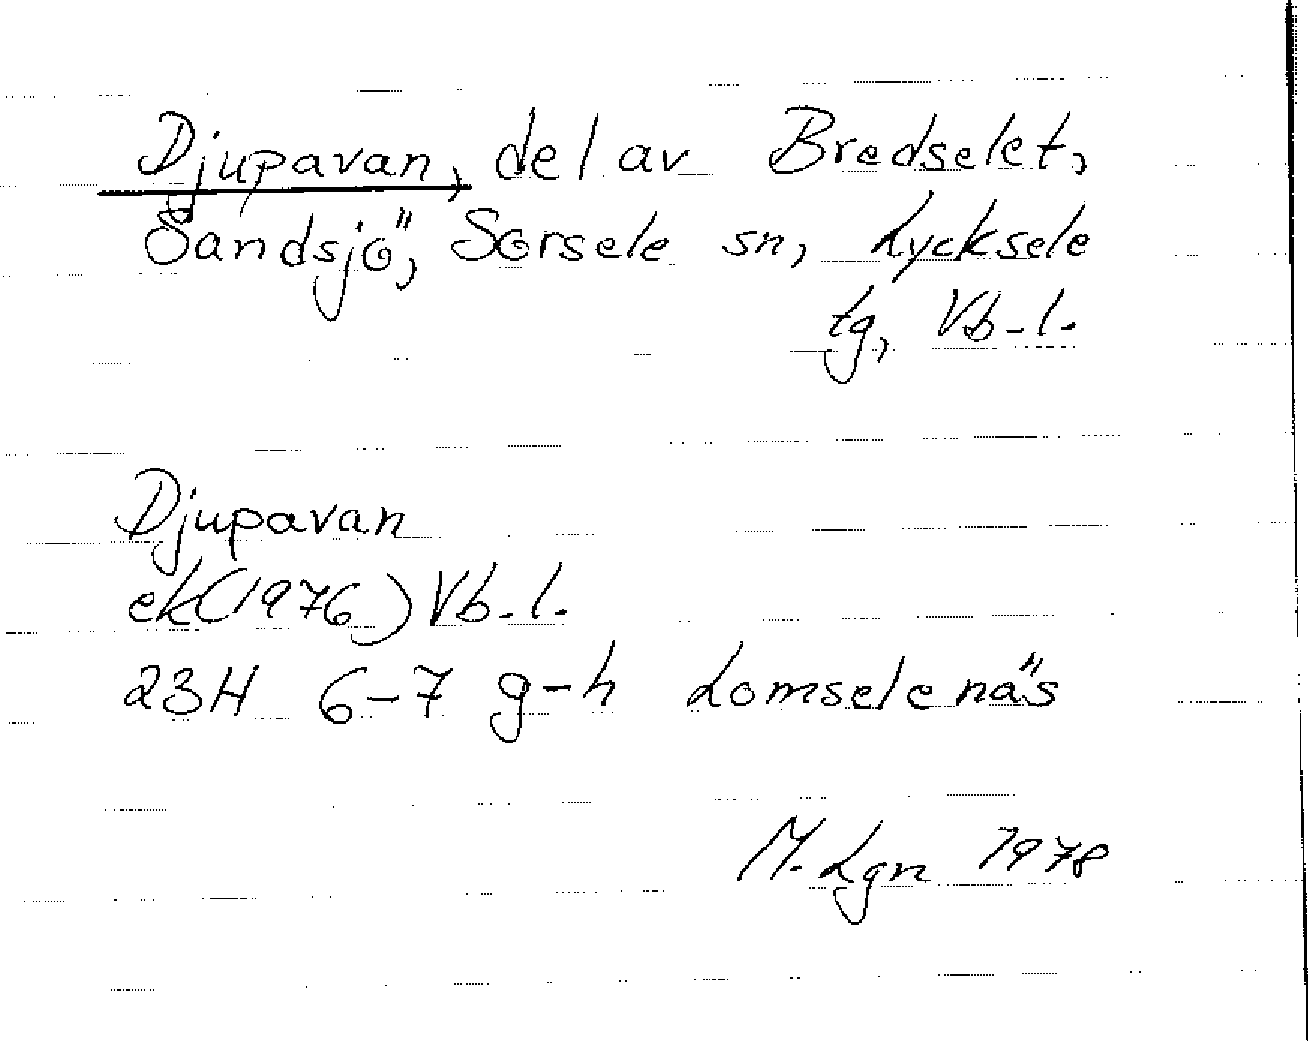 Djupavan, del av Bredselet,
Sandsjö, Sorsele sn, Lycksele
tg, Vb-l.
Djupavan
ek(1976) Vb-l.
23H 6-7 g-h Lomselenäs
M. Lgn 1978